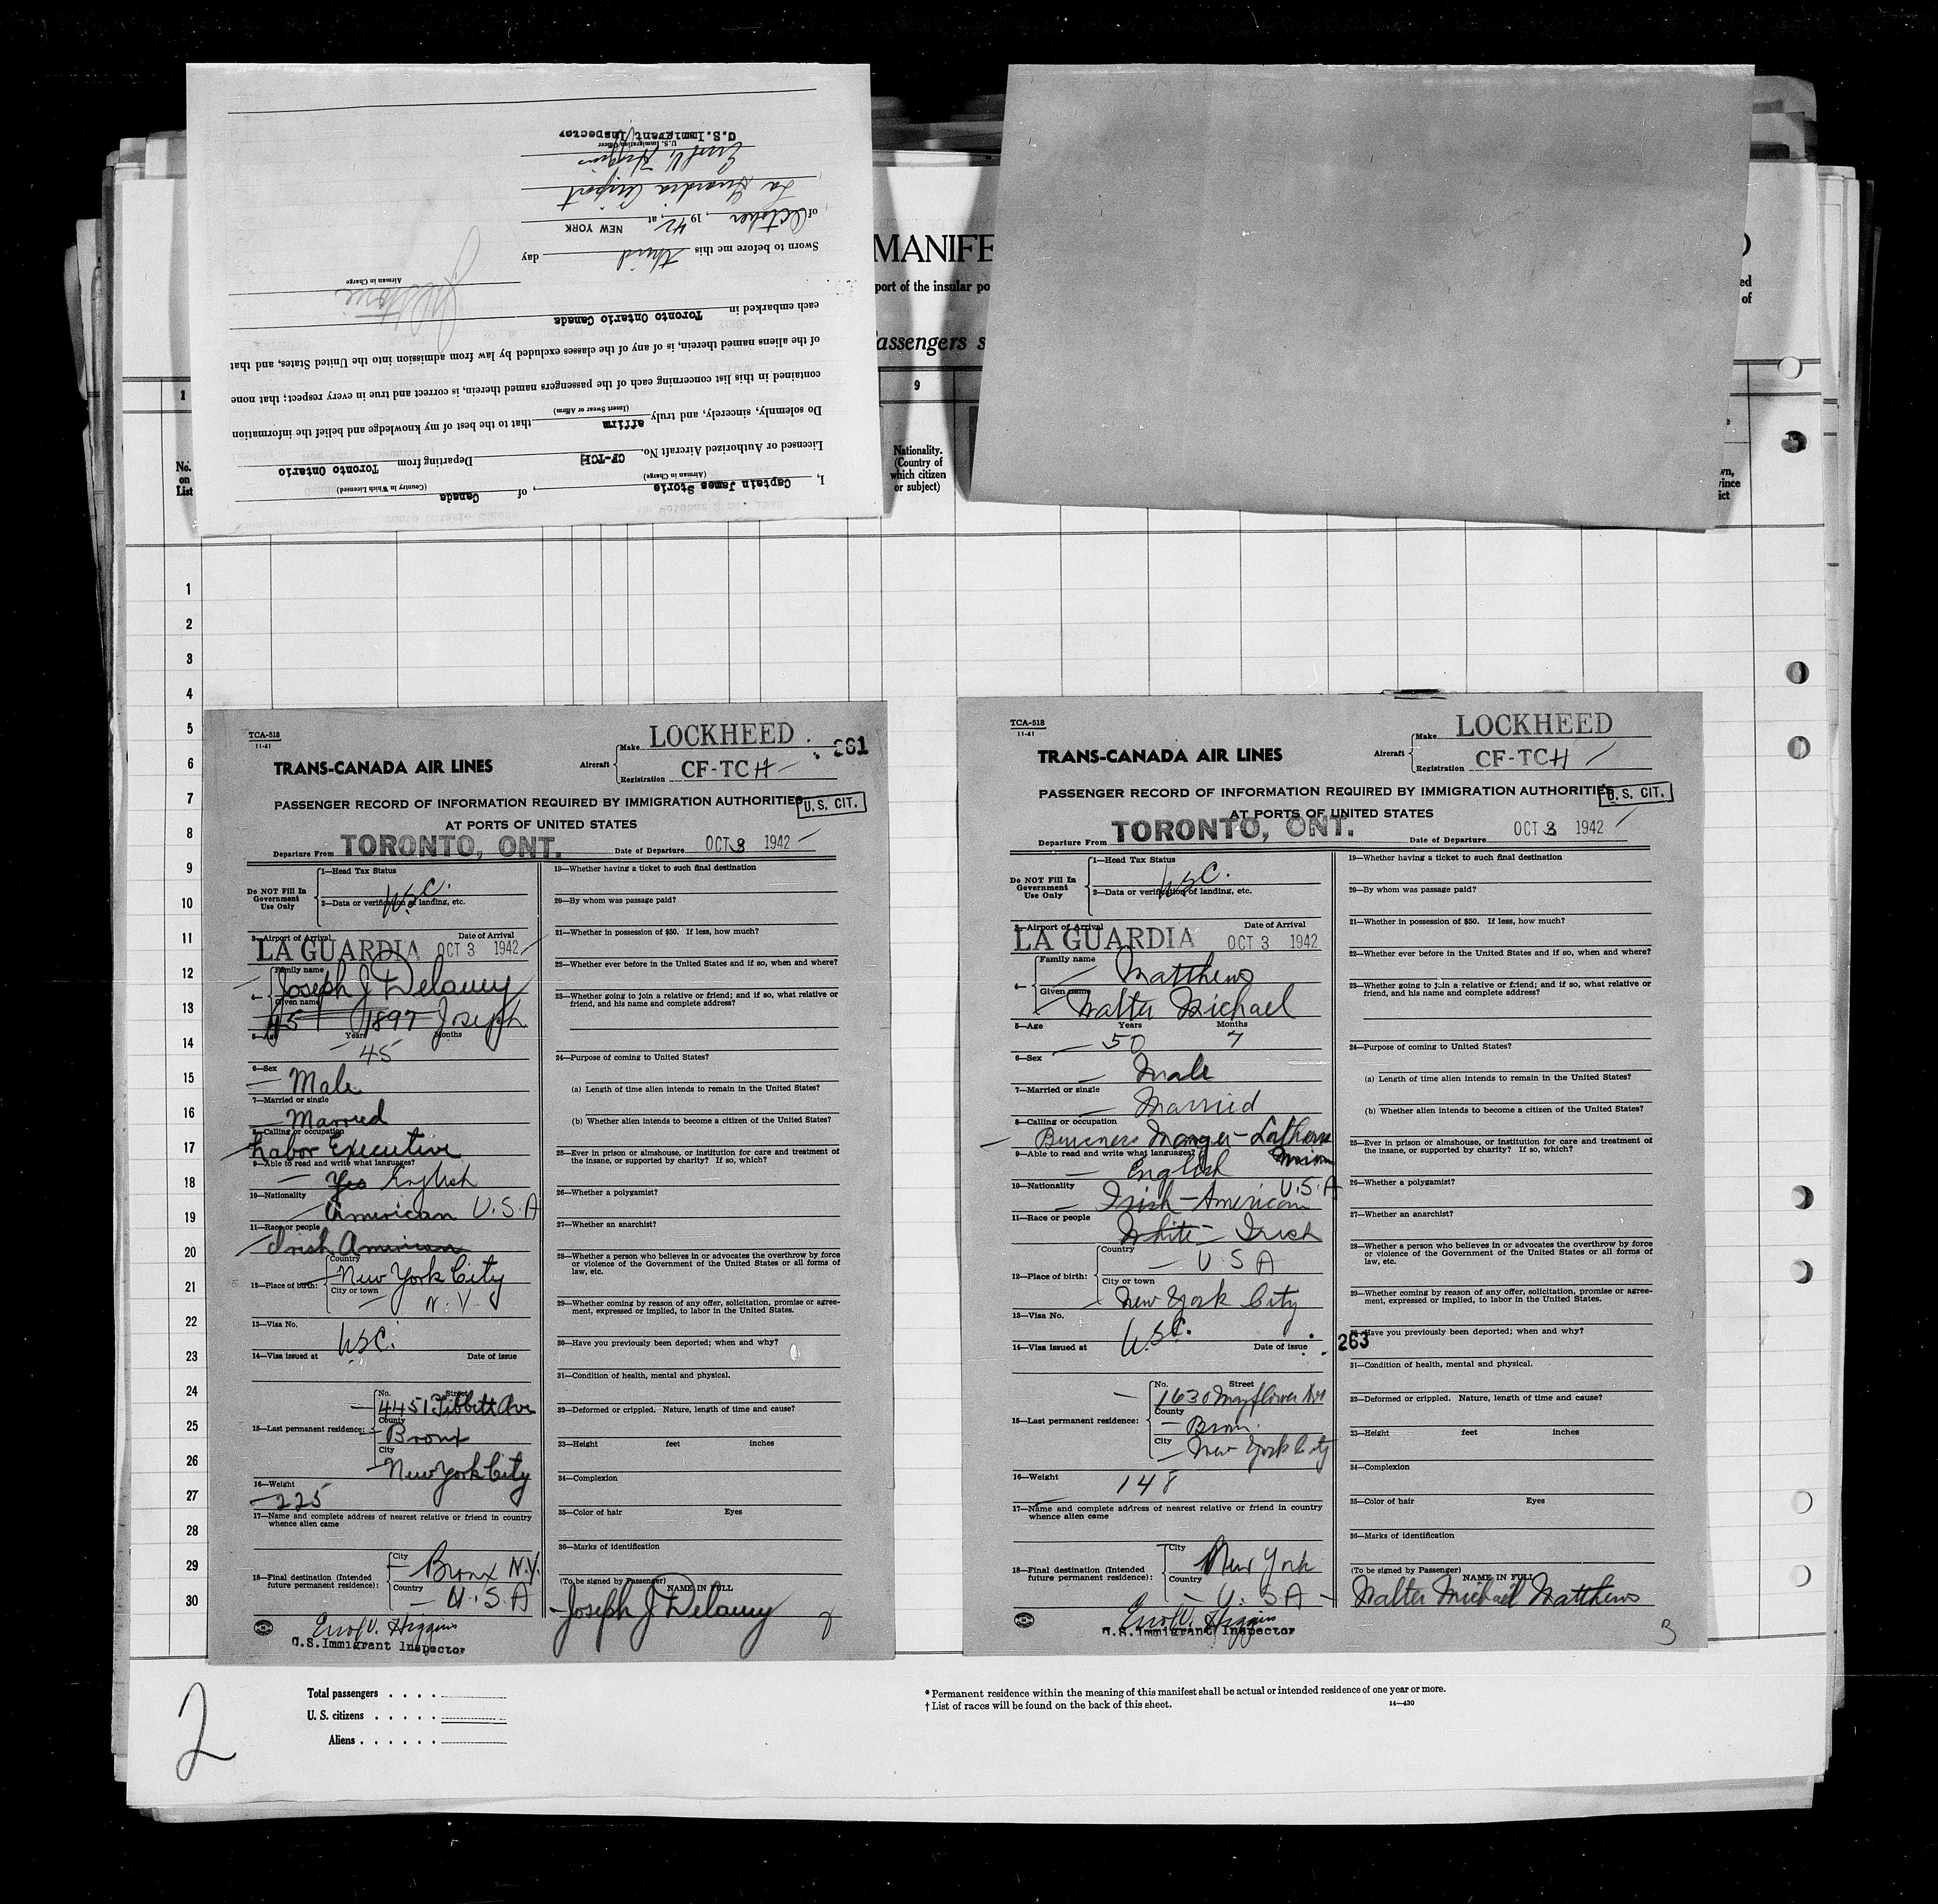 I, Captain James Storie, of Canada
(Airman in Charge) (Country in Which Licensed)
Licensed or Authorized Aircraft No. CF-TCH Departing from Toronto Ontario
Do solemnly, sincerely, and truly affirm that to the best of my knowledge and belief the information
(Insert Swear or Affirm)
contained in this list concerning each of the passengers named therein, is correct and true in every respect; that none
of the aliens named therein, is of any of the classes excluded by law from admission into the United States, and that
each embarked in Toronto Ontario Canada
Airman in Charge
Sworn to before me this third day
of October, 1942, at NEW YORK
La Guardia Airport
Errol V. Higgins
U.S. Immigration Officer
U.S. Immigrant Inspector
MANIFE
port of the insular po
assengers s
ed
of
1
9
No.
on
List
Nationality.
(Country of
which citizen
or subject)
wn,
vince
ict
1
2
3
4
5
6
7
8
9
10
11
12
13
14
15
16
17
18
19
20
21
22
23
24
25
26
27
28
29
30
TCA-518
11-41
TRANS-CANADA AIR LINES
Aircraft Make LOCKHEED
Registration CF-TCH
261
PASSENGER RECORD OF INFORMATION REQUIRED BY IMMIGRATION AUTHORITIES
U.S. CIT.
AT PORTS OF UNITED STATES
Departure From TORONTO, ONT. Date of Departure OCT 3 1942
Do NOT Fill In
Government
Use Only
1—Head Tax Status
U.S.C.
2—Data or verification of landing, etc.
3—Airport of Arrival Date of Arrival
LA GUARDIA OCT 3 1942
4— Family name
Joseph J Delaney
Given name
45 1897 Joseph
5—Age Years Months
45
6—Sex
Male
7—Married or single
Married
8—Calling or occupation
Labor Executive
9—Able to read and write what languages?
Yes English
10—Nationality
American U.S.A
11—Race or people
Irish American
12—Place of birth: Country
New York City
City or town
N.Y.
13—Visa No.
U.S.C.
14—Visa issued at Date of issue
15—Last permanent residence: No. Street
4451 Tibbett Ave
County
Bronx
City
New York City
16—Weight
225
17—Name and complete address of nearest relative or friend in country
whence alien came
18—Final destination (Intended
future permanent residence):
City
Bronx N.Y.
Country
U.S.A
Errol V. Higgins
U.S. Immigrant Inspector
19—Whether having a ticket to such final destination
20—By whom was passage paid?
21—Whether in possession of $50. If less, how much?
22—Whether ever before in the United States and if so, when and where?
23—Whether going to join a relative or friend; and if so, what relative or
friend, and his name and complete address?
24—Purpose of coming to United States?
(a) Length of time alien intends to remain in the United States?
(b) Whether alien intends to become a citizen of the United States?
25—Ever in prison or almshouse, or institution for care and treatment of
the insane, or supported by charity? If so, which?
26—Whether a polygamist?
27—Whether an anarchist?
28—Whether a person who believes in or advocates the overthrow by force
or violence of the Government of the United States or all forms of
law, etc.
29—Whether coming by reason of any offer, solicitation, promise or agree-
ment, expressed or implied, to labor in the United States.
30—Have you previously been deported; when and why?
31—Condition of health, mental and physical.
32—Deformed or crippled. Nature, length of time and cause?
33—Height feet inches
34—Complexion
35—Color of hair Eyes
36—Marks of identification
(To be signed by Passenger)
NAME IN FULL
Joseph J Delaney
TCA-518
11-41
TRANS-CANADA AIR LINES
Aircraft Make LOCKHEED
Registration CF-TCH
PASSENGER RECORD OF INFORMATION REQUIRED BY IMMIGRATION AUTHORITIES
U.S. CIT.
AT PORTS OF UNITED STATES
Departure From TORONTO, ONT. Date of Departure OCT 3 1942
Do NOT Fill In
Government
Use Only
1—Head Tax Status
U.S.C.
2—Data or verification of landing, etc.
3—Airport of Arrival Date of Arrival
LA GUARDIA OCT 3 1942
4— Family name
Matthews
Given name
Walter Michael
5—Age Years Months
50 7
6—Sex
Male
7—Married or single
Married
8—Calling or occupation
Business Manger - Lathers
Union
9—Able to read and write what languages?
English
10—Nationality U.S.A
Irish - American
11—Race or people
White - Irish
12—Place of birth: Country
U.S.A
City or town
New York City
13—Visa No.
U.S.C.
14—Visa issued at Date of issue
15—Last permanent residence: No. Street
1630 Mayflower Ave
County
Bronx
City
New York City
16—Weight
148
17—Name and complete address of nearest relative or friend in country
whence alien came
18—Final destination (Intended
future permanent residence):
City
New York
Country
U.S.A
Errol V. Higgins
U.S. Immigrant Inspector
19—Whether having a ticket to such final destination
20—By whom was passage paid?
21—Whether in possession of $50. If less, how much?
22—Whether ever before in the United States and if so, when and where?
23—Whether going to join a relative or friend; and if so, what relative or
friend, and his name and complete address?
24—Purpose of coming to United States?
(a) Length of time alien intends to remain in the United States?
(b) Whether alien intends to become a citizen of the United States?
25—Ever in prison or almshouse, or institution for care and treatment of
the insane, or supported by charity? If so, which?
26—Whether a polygamist?
27—Whether an anarchist?
28—Whether a person who believes in or advocates the overthrow by force
or violence of the Government of the United States or all forms of
law, etc.
29—Whether coming by reason of any offer, solicitation, promise or agree-
ment, expressed or implied, to labor in the United States.
263
30—Have you previously been deported; when and why?
31—Condition of health, mental and physical.
32—Deformed or crippled. Nature, length of time and cause?
33—Height feet inches
34—Complexion
35—Color of hair Eyes
36—Marks of identification
(To be signed by Passenger)
NAME IN FULL
Walter Michael Matthews
3
2
Total passengers . . . .
U. S. citizens . . . . .
Aliens . . . . . .
* Permanent residence within the meaning of this manifest shall be actual or intended residence of one year or more.
† List of races will be found on the back of this sheet. 14—430